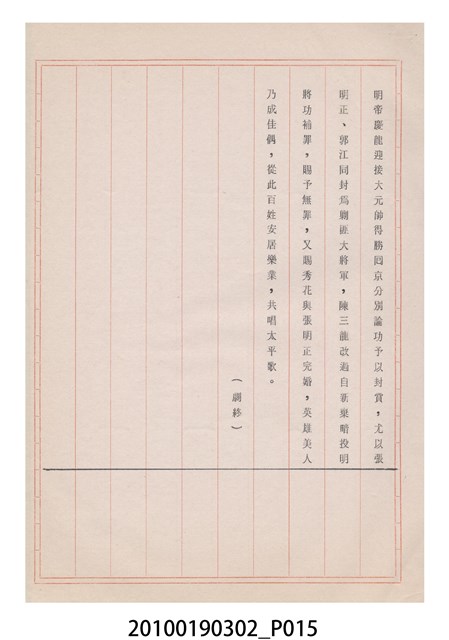 明帝慶龍迎接大元帥得勝囘京分別論功予以封賞，尤以張
明正、郭江同封爲剿匪大將軍，陳三龍改過自新棄暗投明
將功補罪，賜予無罪，又賜秀花與張明正完婚，英雄美人
乃成佳偶，從此百姓安居樂業，共唱太平歌。
（劇終）
20100190302_P015